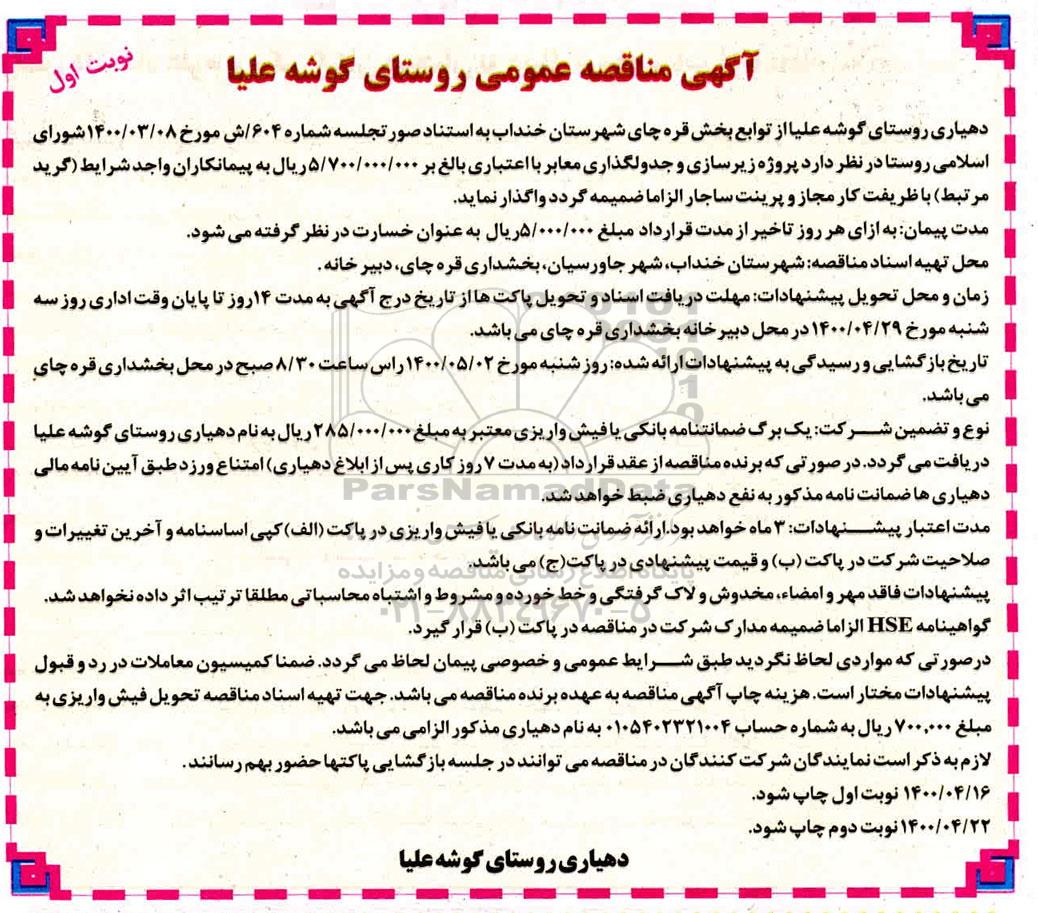 نوبت اول
آگهی مناقصه عمومی روستای گوشه علیا
دهیاری روستای گوشه علیا از توابع بخش قره چای شهرستان خنداب به استناد صورتجلسه شماره ۶۰۴/ش مورخ ۱۴۰۰/۰۳/۰۸ شورای
اسلامی روستا در نظر دارد پروژه زیرسازی و جدولگذاری معابر با اعتباری بالغ بر ۵/۷۰۰/۰۰۰/۰۰۰ ریال به پیمانکاران واجد شرایط (گرید
مرتبط) با ظریفت کار مجاز و پرینت ساجار الزاما ضمیمه گردد واگذار نماید.
مدت پیمان: به ازای هر روز تاخیر از مدت قرارداد مبلغ ۵/۰۰۰/۰۰۰ریال به عنوان خسارت در نظر گرفته می شود.
محل تهیه اسناد مناقصه: شهرستان خنداب، شهر جاورسیان، بخشداری قره چای، دبیر خانه.
زمان و محل تحویل پیشنهادات: مهلت دریافت اسناد و تحویل پاکت ها از تاریخ درج آگهی به مدت ۱۴روز تا پایان وقت اداری روز سه
شنبه مورخ ۱۴۰۰/۰۴/۲۹ در محل دبیر خانه بخشداری قره چای می باشد.
تاریخ بازگشایی و رسیدگی به پیشنهادات ارائه شده: روز شنبه مورخ ۱۴۰۰/۰۵/۰۲ راس ساعت ۸/۳۰ صبح در محل بخشداری قره چای
می باشد.
نوع و تضمین شرکت: یک برگ ضمانتنامه بانکی یا فیش واریزی معتبر به مبلغ ۲۸۵/۰۰۰/۰۰۰ ریال به نام دهیاری روستای گوشه علیا
دریافت می گردد. در صورتی که برنده مناقصه از عقد قرارداد (به مدت ۷ روز کاری پس از ابلاغ دهیاری) امتناع ورزد طبق آیین نامه مالی
دهیاری ها ضمانت نامه مذکور به نفع دهیاری ضبط خواهد شد.
مدت اعتبار پیشنهادات: ۳ ماه خواهد بود.ارائه ضمانت نامه بانکی یا فیش واریزی در پاکت (الف) کپی اساسنامه و آخرین تغییرات و
صلاحیت شرکت در پاکت (ب) و قیمت پیشنهادی در پاکت(ج) می باشد.
پیشنهادات فاقد مهر و امضاء، مخدوش و لاک گرفتگی و خط خورده و مشروط و اشتباه محاسباتی مطلقا ترتیب اثر داده نخواهد شد.
گواهینامه HSE الزاما ضمیمه مدارک شرکت در مناقصه در پاکت (ب) قرار گیرد.
درصورتی که مواردی لحاظ نگردید طبق شرایط عمومی و خصوصی پیمان لحاظ می گردد. ضمنا کمیسیون معاملات در رد و قبول
پیشنهادات مختار است. هزینه چاپ آگهی مناقصه به عهده برنده مناقصه می باشد. جهت تهیه اسناد مناقصه تحویل فیش واریزی به
مبلغ ۷۰۰,۰۰۰ ریال به شماره حساب ۰۱۰۵۴۰۲۳۲۱۰۰۴ به نام دهیاری مذکور الزامی می باشد.
لازم به ذکر است نمایندگان شرکت کنندگان در مناقصه می توانند در جلسه بازگشایی پاکتها حضور بهم رسانند.
۱۴۰۰/۰۴/۱۶ نوبت اول چاپ شود.
۱۴۰۰/۰۴/۲۲ نوبت دوم چاپ شود.
دهیاری روستای گوشه علیا
ParsNamadData
پایگاه اطلاع رسانی مناقصه و مزایده
۰۲۱-۸۸۳۴۹۶۷۰-۵